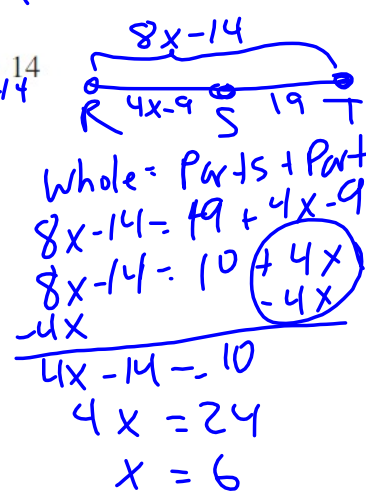 8x-14
14
14
4x-9 19
R S T
Whole = Parts + Part
8x-14 = 19 + 4x-9
8x-14 = 10 + 4x
-4x
-4x
4x-14 = 10
4x = 24
x = 6